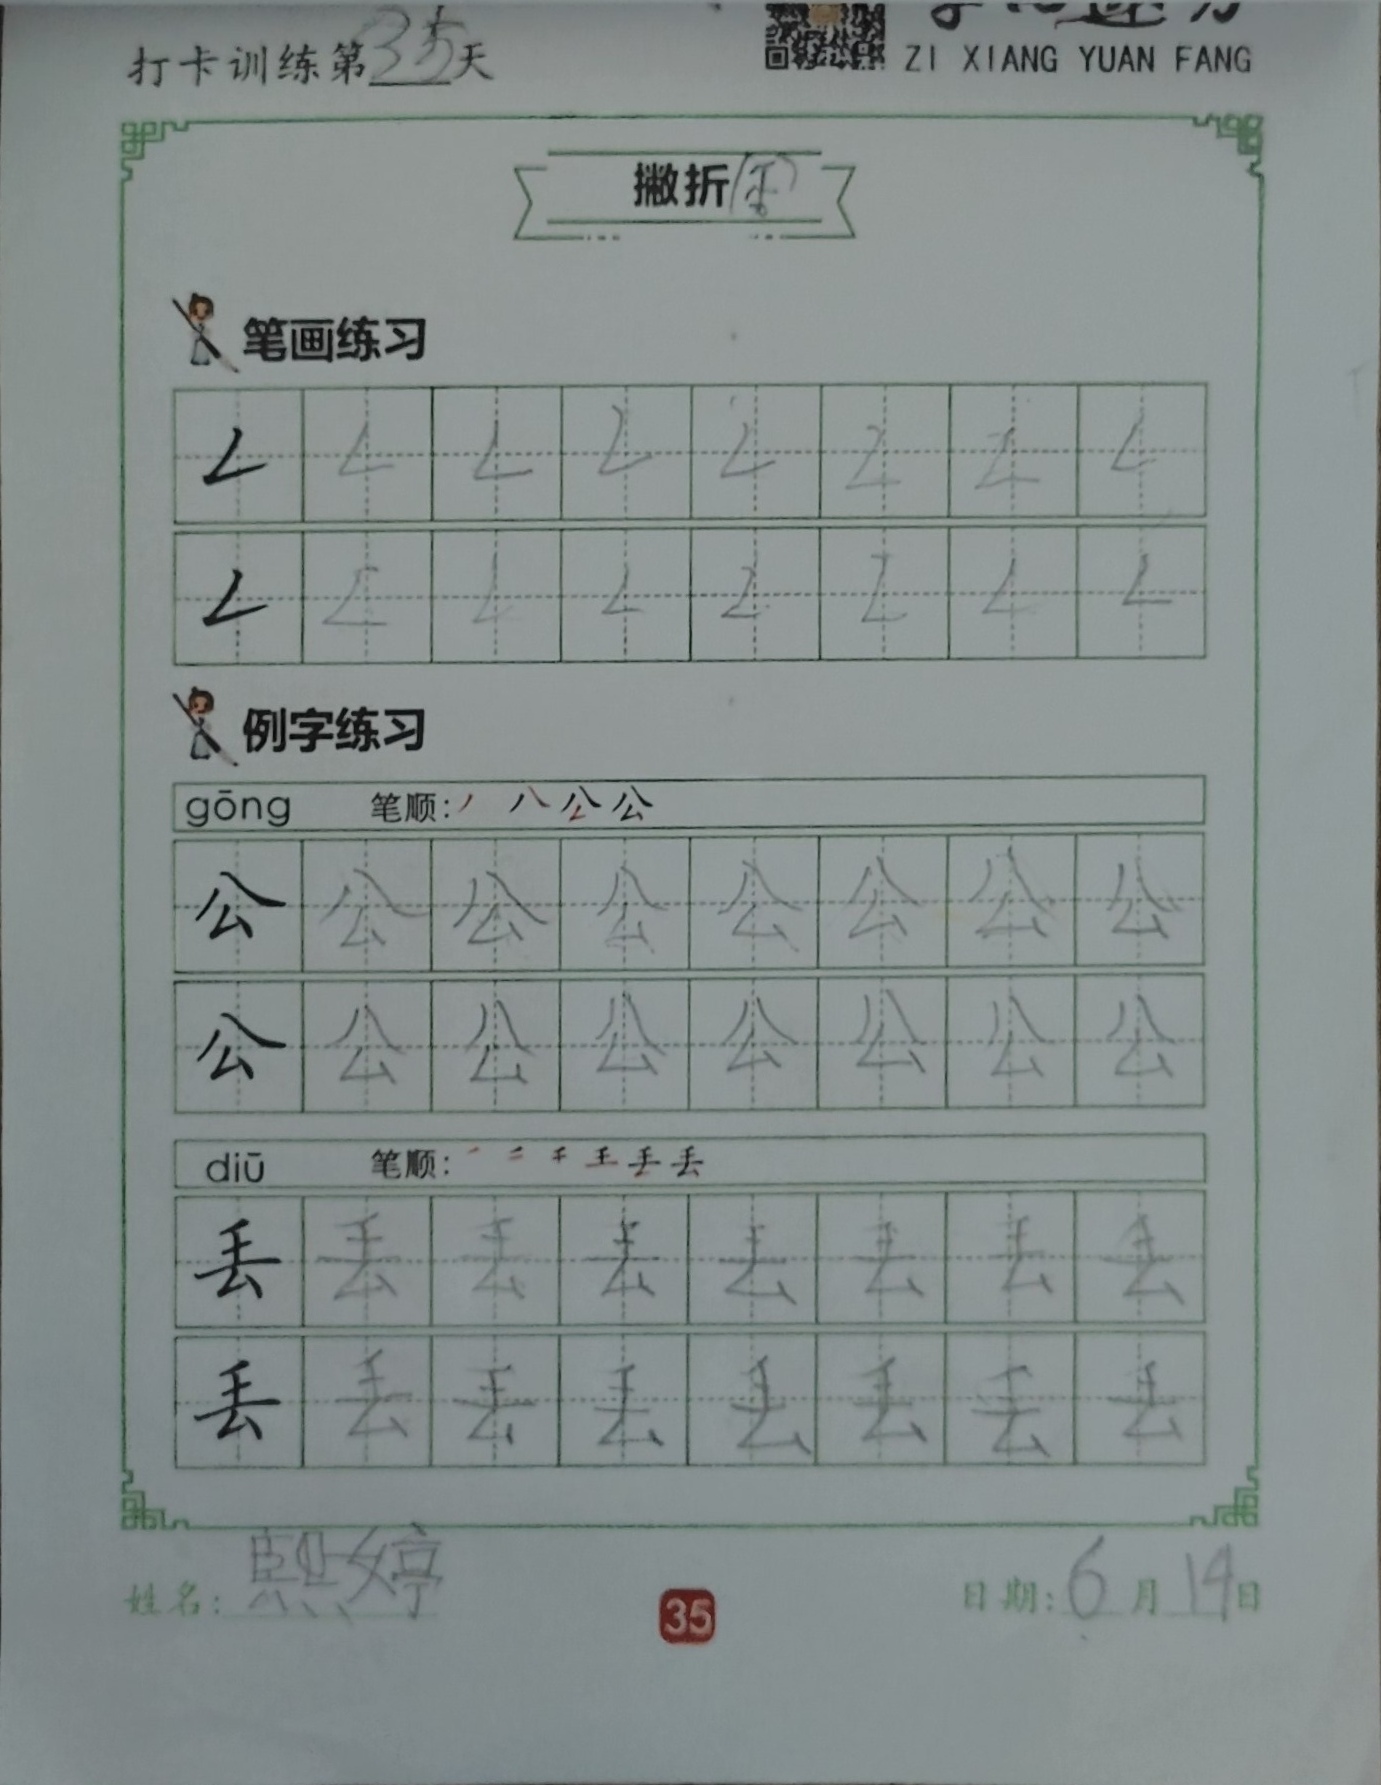 打卡训练第35天
ZI XIANG YUAN FANG
撇折
笔画练习
𠃋 𠃋 𠃋 𠃋 𠃋 𠃋 𠃋 𠃋
𠃋 𠃋 𠃋 𠃋 𠃋 𠃋 𠃋 𠃋
例字练习
gōng 笔顺: 丿 八 公 公
公 公 公 公 公 公 公 公
公 公 公 公 公 公 公 公
diū 笔顺:
丢 丢 丢 丢 丢 丢 丢 丢
丢 丢 丢 丢 丢 丢 丢 丢
姓名: 熙婷 35 日期: 6月14日